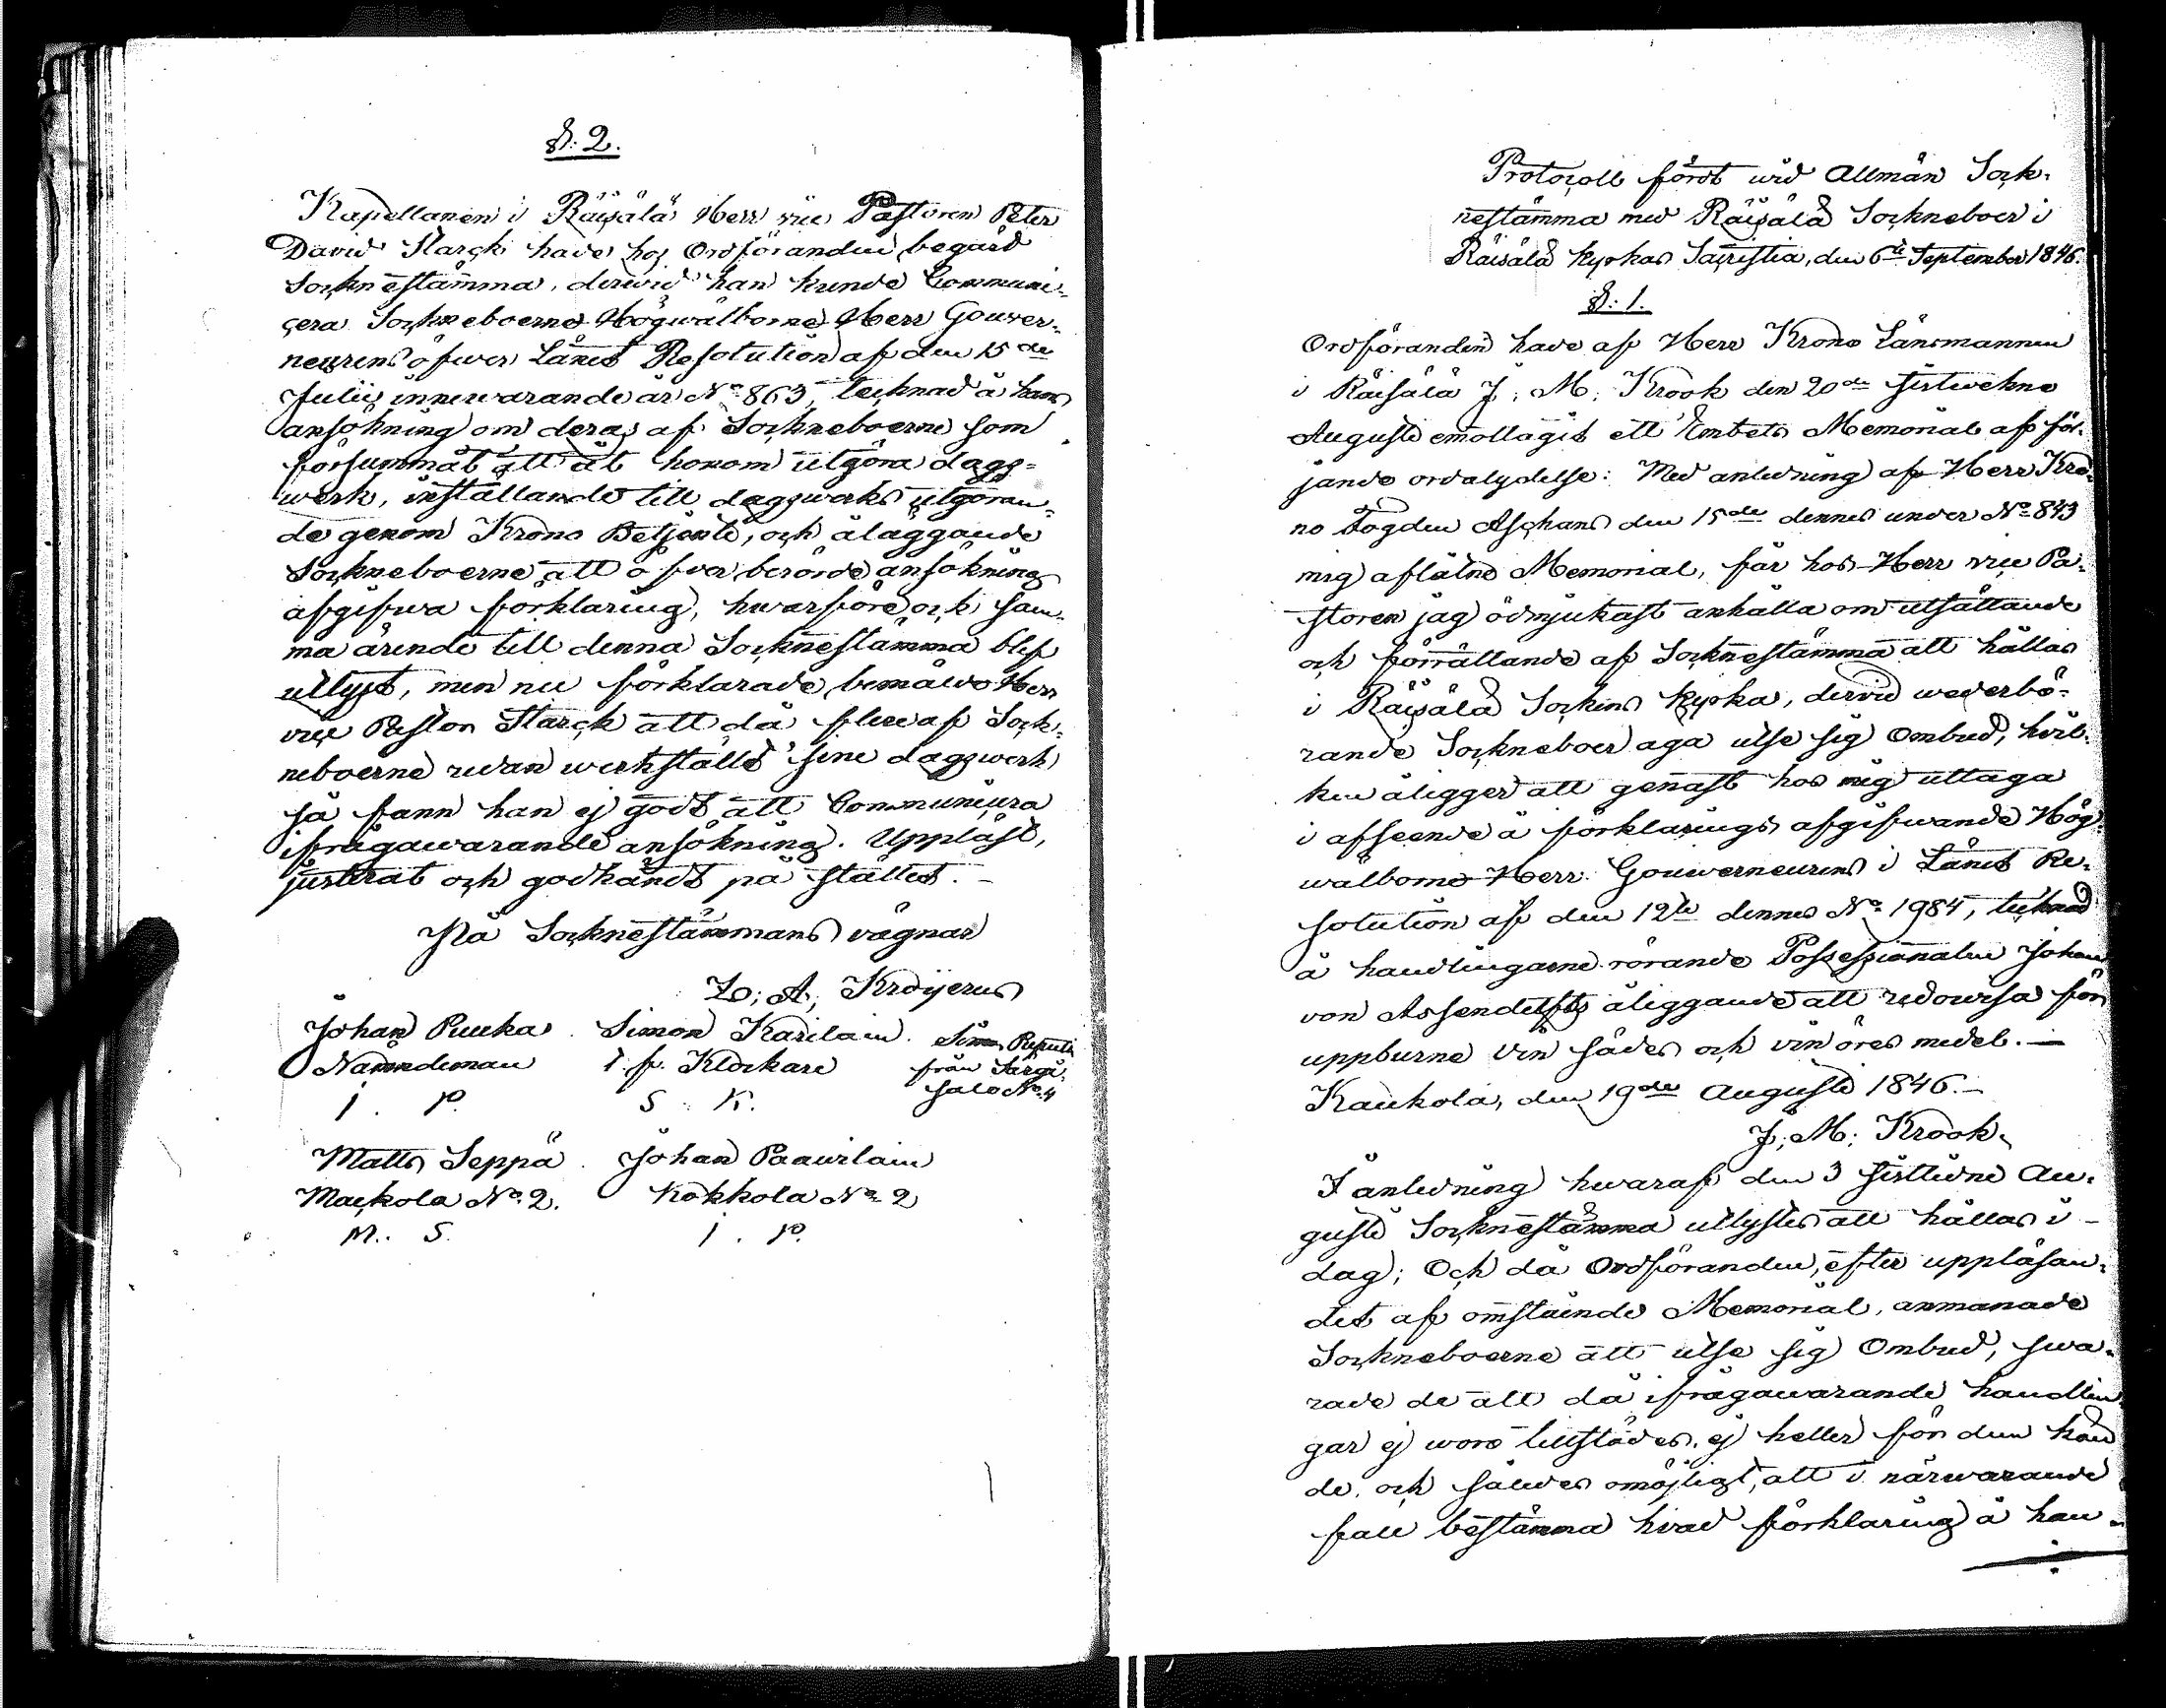 §: 2.
Kapellanen i Räisälä Herr vice Pastoren Peter
David Starck hade hos Ordföranden begärd
Socknestämma, derwid han kunde Communi=
cera Sockneboerne Högwälborne Herr Gouver=
neurens öfwer Länet Resolution af den 15de
Julii innewarande år No 863, tecknad å hans
ansökning om deras af Sockneboerne som
försummat att åt honom utgöra dags=
werk, inställande till dagswerks utgöran=
de genom Krono Betjente, och åläggande
Sockneboerne att öfwer berörde ansökning
afgifwa förklaring, hwarföre ock sam=
ma ärende till denna Socknestämma blef
utlyst, men nu förklarade bemälde Herr
vice Pastor Starck att då flere af Sock=
neboerne redan werkställd sine dagswerk
så fann han ej godt att Communicera
ifrågawarande ansökning. Uppläst,
justerat och godkändt på stället.
På Socknestämmans vägnar
A. Kröijerus
Johan Puuka. Simon Karilain. Simon
Nämndeman T. f. Klockare från
I. P. S. K. salo No 4
Matts Seppä. Johan Paawilain
Mackola No 2. Kökkola No 2
M. S. I. P.
Protocoll fördt wid Allmän Sock=
nestämma med Räisälä Sockneboer i
Räisälä kyrkas Sacristia, den 6te September 1846.
§: 1.
Ordföranden hade af Herr Krono Länsmannen
i Räisälä J. M. Krook den 20de sistwekne
Augusti emottagit ett Embets Memorial af föl=
jande ordalydelse: Med anledning af Herr Kro=
no Fogden Aschans den 15de dennes under No 843
mig aflåtne Memorial, får hos Herr vice Pa=
storen jag ödmjukast anhålla om utsättande
och förrättande af Socknestämma att hållas
i Räisälä Sockens kyrka, dervid wederbö=
rande Sockneboer äga utse sig Ombud, hvil=
ken åligger att genast hos mig uttaga
i afseende å förklarings afgifwande Hög=
wälborne Herr Gouverneurens i Länet Re=
solution af den 12te dennes No 1984, tecknad
å handlingarne rörande Possessionaten Johan
von Assendelfts åliggande att redowisa för
uppburne vin sädes och vin öres medel.
Kaukola, den 19de Augusti 1846.
J. M. Krook.
I anledning hwaraf den 3 sistledne Au=
gusti Socknestämma utlystes att hållas i
dag; Och då Ordföranden, efter uppläsan=
det af omstående Memorial, anmanade
Sockneboerne att utse sig Ombud, swa=
rade de att då ifrågawarande handlin
gar ej woro tillstädes, ej heller för dem kän
de, och således omöjligt, att i närwarande
fall bestämma hvad förklaring å han=